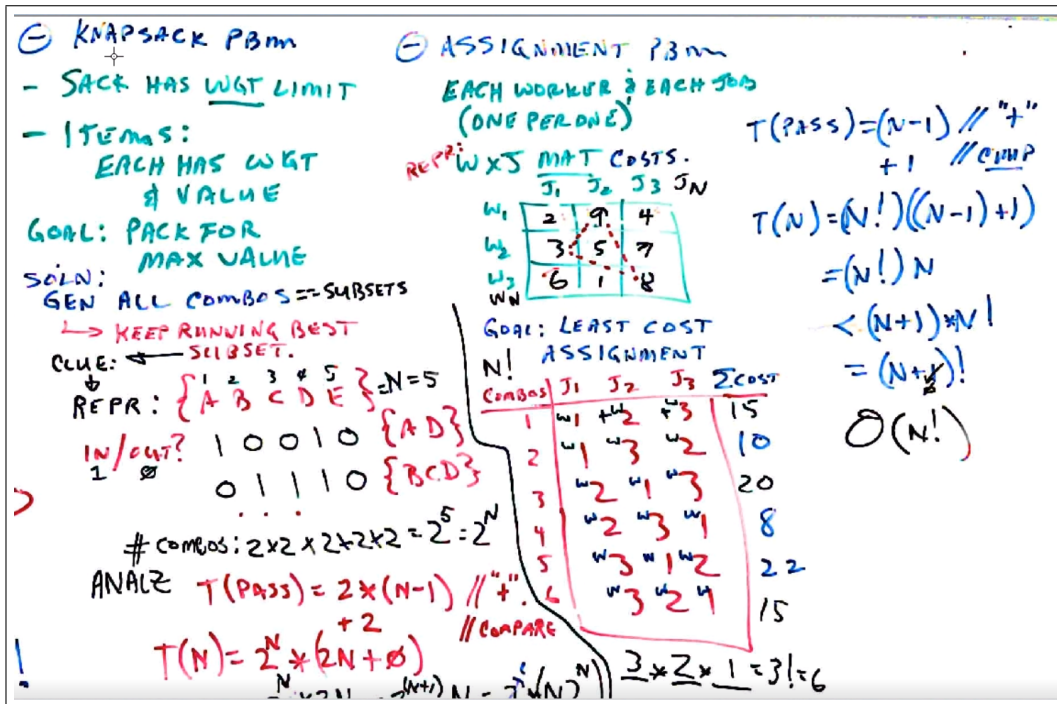 ⊖ KNAPSACK PBm
- SACK HAS WGT LIMIT
- ITEMS:
EACH HAS WGT
& VALUE
GOAL: PACK FOR
MAX VALUE
SOLN:
GEN ALL COMBOS == SUBSETS
↳ KEEP RUNNING BEST
SUBSET.
CLUE: ←
1 2 3 4 5
REPR: {A B C D E} = N=5
IN/OUT? 1 0 0 1 0 {AD}
1 ∅
0 1 1 1 0 {BCD}
. . .
# COMBOS: 2×2×2×2×2 = 2^5 = 2^N
ANALZ T(PASS) = 2*(N-1) // "+".
+ 2 // COMPARE
T(N) = 2^N * (2N+∅)
⊖ ASSIGNMENT PBm
EACH WORKER & EACH JOB
(ONE PER ONE)
REPR: W×J MAT COSTS.
J1 J2 J3 JN
W1 2 9 4
W2 3 5 7
W3 6 1 8
WN
GOAL: LEAST COST
ASSIGNMENT
N!
COMBOS J1 J2 J3 ΣCOST
1 W1 +W2 +W3 15
2 W1 W3 W2 10
3 W2 W1 W3 20
4 W2 W3 W1 8
5 W3 W1 W2 22
6 W3 W2 W1 15
3*2*1 = 3! = 6
T(PASS) = (N-1) // "+"
+ 1 // CMP
T(N) = (N!)((N-1)+1)
= (N!) N
< (N+1)*N!
= (N+1)!
O(N!)